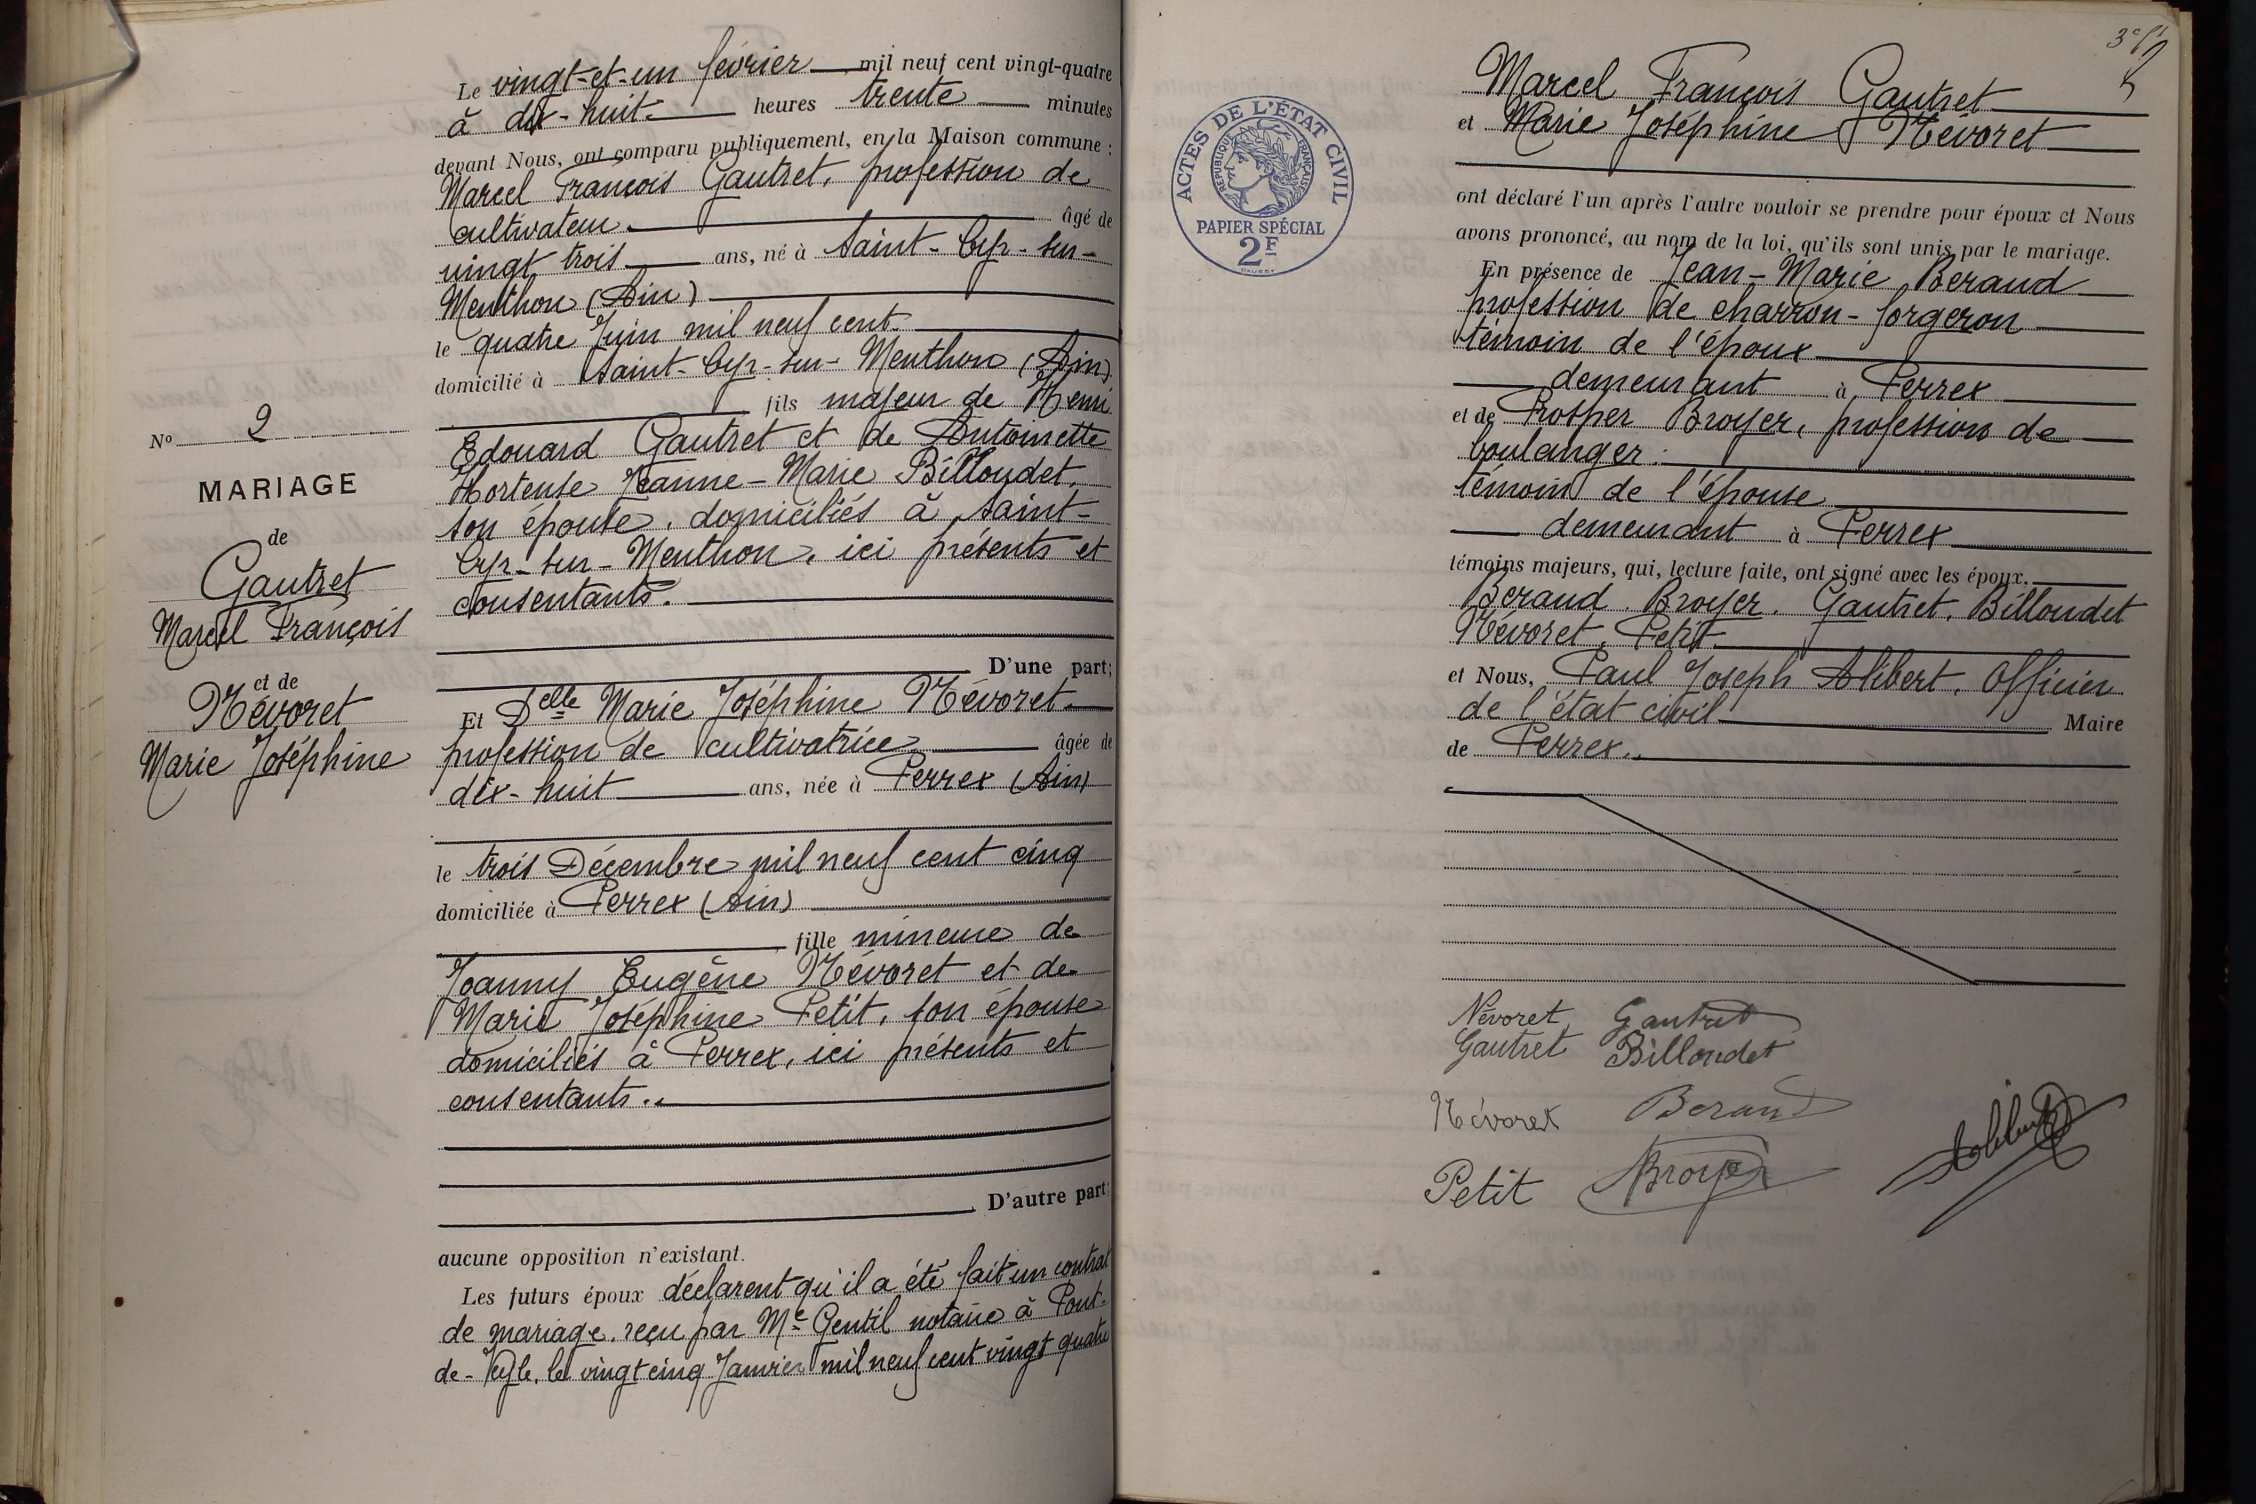 Le vingt-et-un février mil neuf cent vingt-quatre
à dix-huit heures trente minutes
devant Nous, ont comparu publiquement, en la Maison commune :
Marcel François Gautret, profession de
cultivateur âgé de
vingt trois ans, né à Saint-Cyr-sur-
Menthon (Ain)
le quatre Juin mil neuf cent
domicilié à Saint-Cyr-sur-Menthon (Ain)
fils majeur de Henri
Edouard Gautret et de Antoinette
Hortense Jeanne-Marie Billoudet,
son épouse, domiciliés à Saint-
Cyr-sur-Menthon, ici présents et
consentants.
D'une part;
Nº 2
MARIAGE
de
Gautret
Marcel François
et de
Névoret
Marie Joséphine
Et Delle Marie Joséphine Névoret
profession de cultivatrice âgée de
dix-huit ans, née à Perrex (Ain)
le trois Décembre mil neuf cent cinq
domiciliée à Perrex (Ain)
fille mineure de
Joanny Eugène Névoret et de
Marie Joséphine Petit, son épouse
domiciliés à Perrex, ici présents et
consentants..
D'autre part;
aucune opposition n'existant.
Les futurs époux déclarent qu'il a été fait un contrat
de mariage, reçu par Me Gentil notaire à Pont-
de-Veyle, le vingt cinq Janvier mil neuf cent vingt quatre
ACTES DE L'ÉTAT CIVIL
RÉPUBLIQUE FRANÇAISE
PAPIER SPÉCIAL
2F
Marcel François Gautret
et Marie Joséphine Névoret
ont déclaré l'un après l'autre vouloir se prendre pour époux et Nous
avons prononcé, au nom de la loi, qu'ils sont unis par le mariage.
En présence de Jean-Marie Beraud
profession de charron-forgeron
témoin de l'époux
demeurant à Perrex
et de Prosper Broyer, profession de
boulanger.
témoin de l'épouse
demeurant à Perrex
témoins majeurs, qui, lecture faite, ont signé avec les époux.
Béraud. Broyer. Gautret. Billoudet
Névoret. Petit
et Nous, Paul Joseph Alibert, Officier
de l'état civil Maire
de Perrex..
Névoret Gautret
Gautret Billoudet
Névoret Beraud
Petit Broyer
Alibert